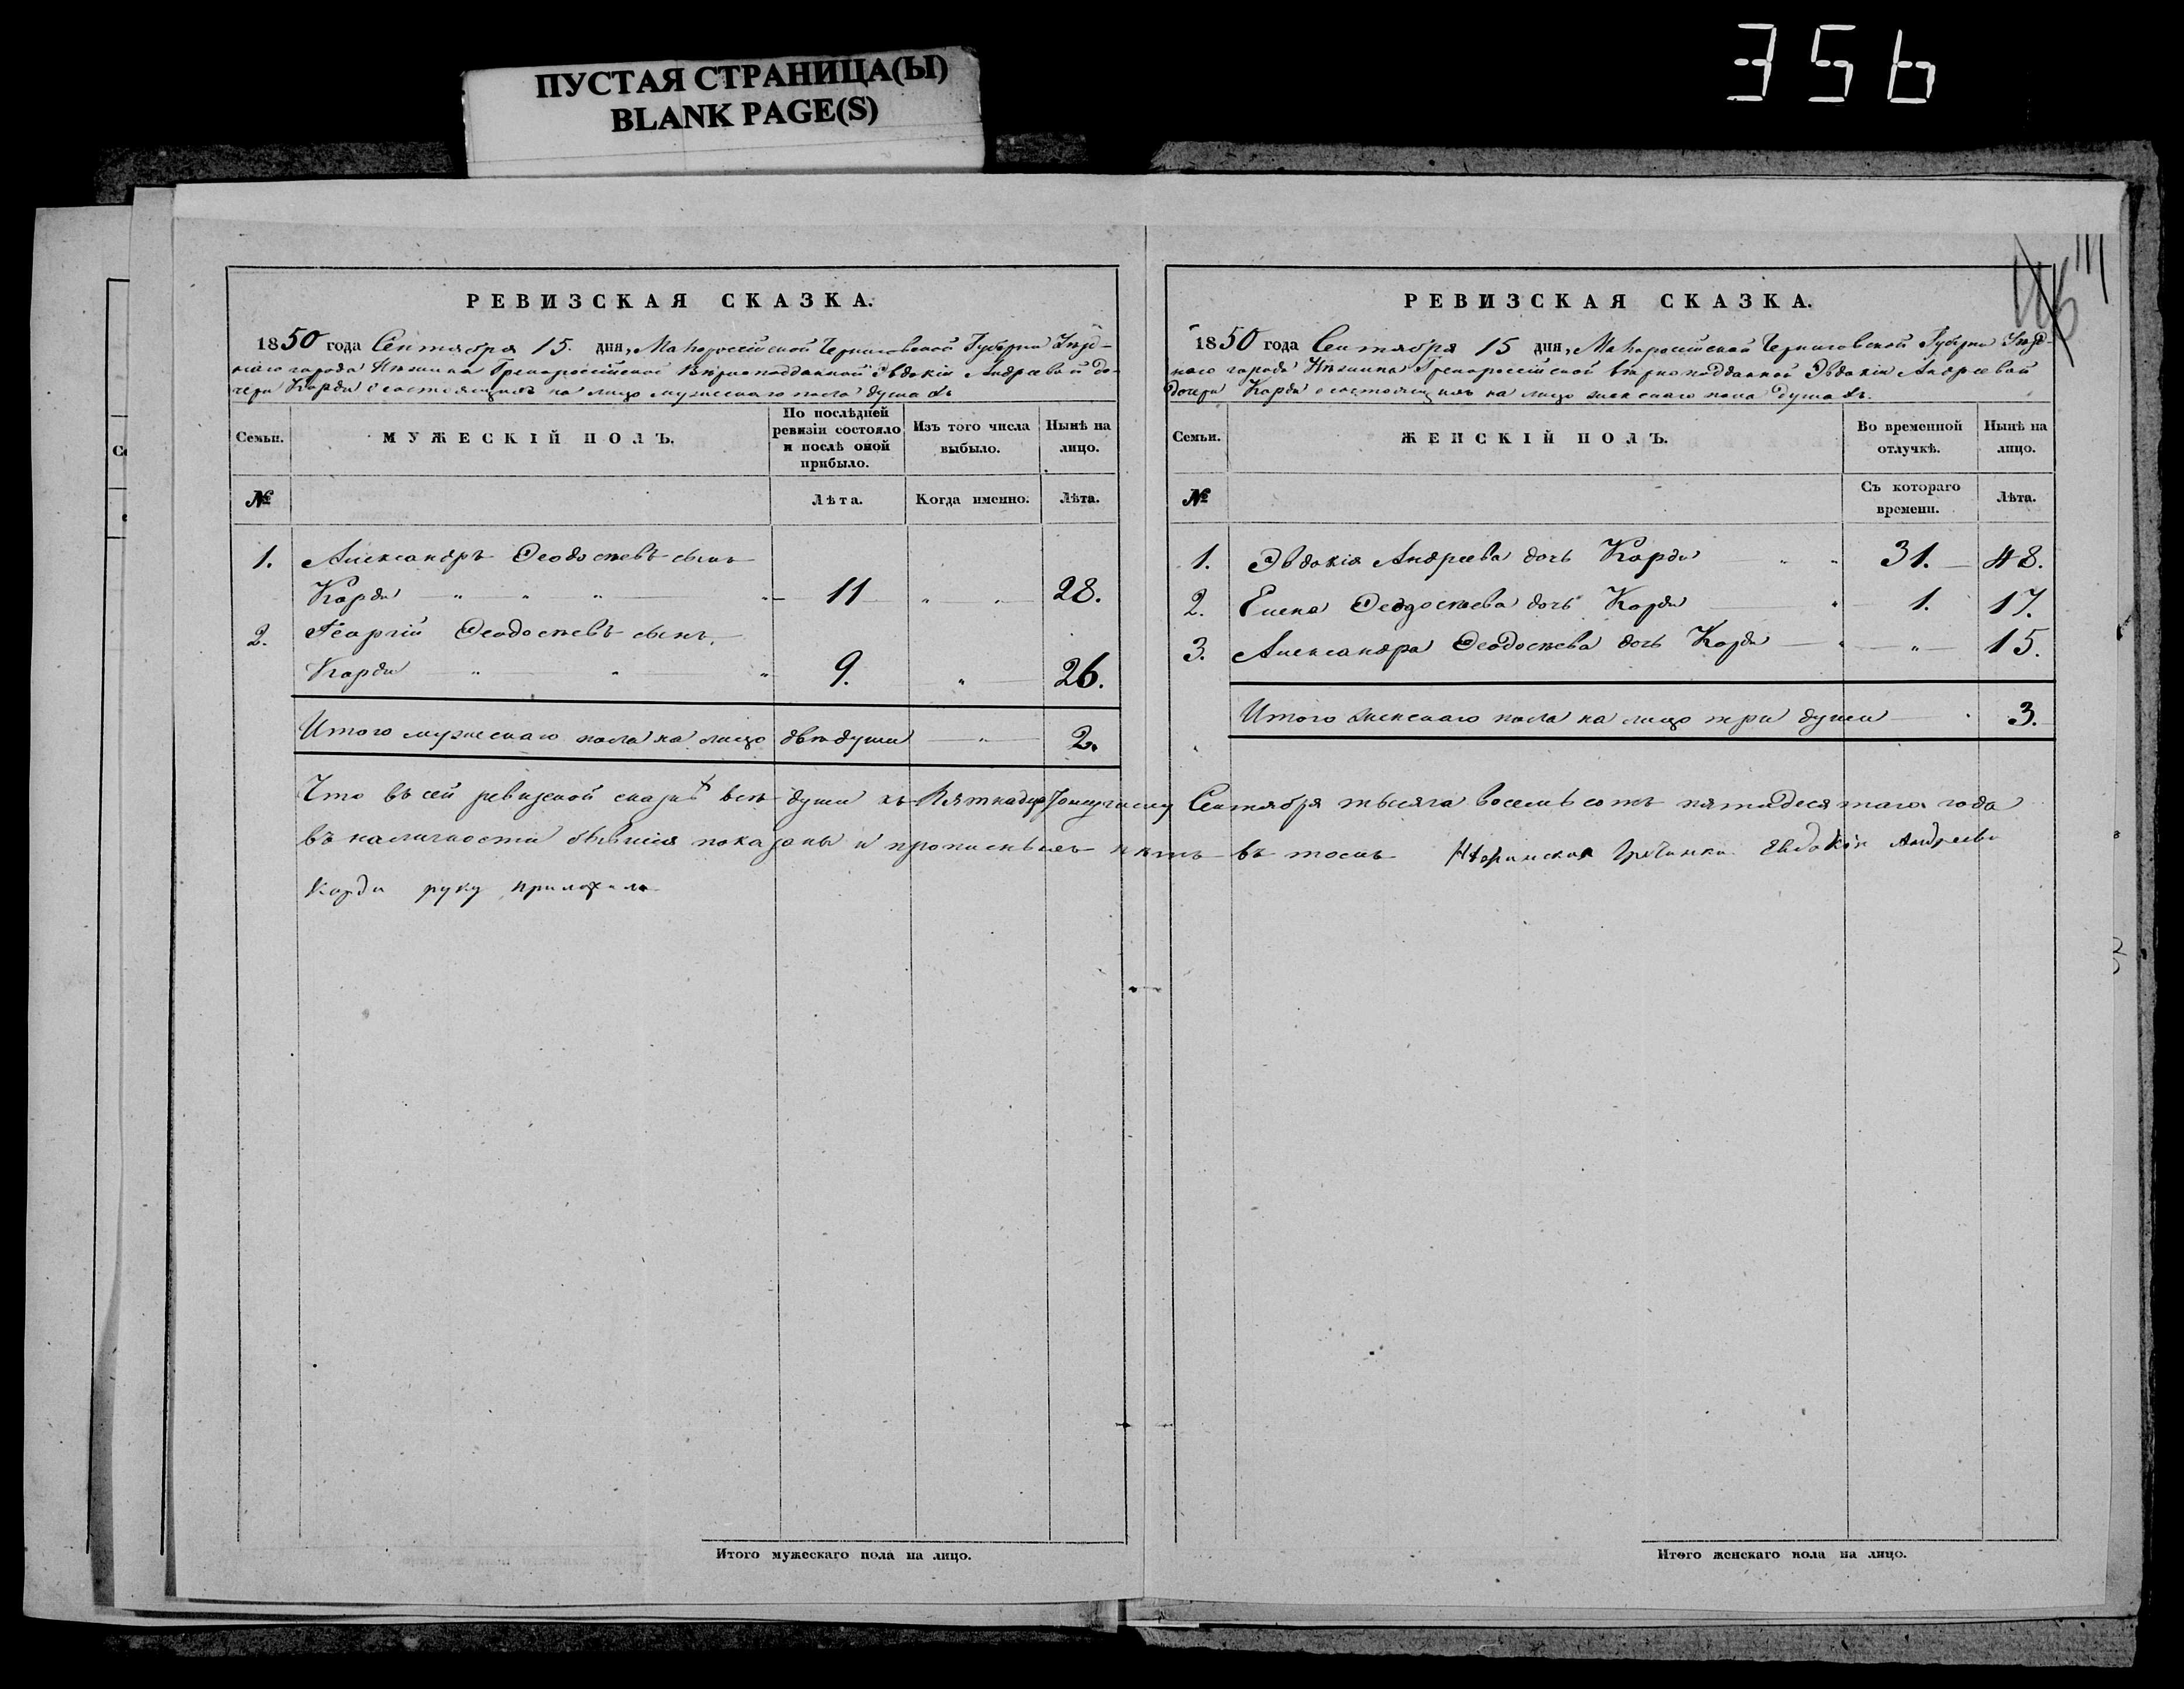 ПУСТАЯ СТРАНИЦА(Ы)
BLANK PAGE(S)
356
111
РЕВИЗСКАЯ СКАЗКА.
1850 года Сентября 15. дня, Малороссійской Черниговской Губерніи Уѣзд-
наго города Нѣжина Грекороссійской Вѣрноподданной Эвдокіи Андреевой до-
чери Корди о состоящихъ на лицо мужескаго пола душахъ
Семьи.
МУЖЕСКІЙ ПОЛЪ.
По послѣдней ревизіи состояло и послѣ оной прибыло.
Изъ того числа выбыло.
Нынѣ на лицо.
№
Лѣта.
Когда именно.
Лѣта.
1. Александръ Ѳеодосіевъ сынъ
Корди " " " " 11 " " 28.
2. Георгій Ѳеодосіевъ сынъ
Корди " " " 9. " 26.
Итого мужескаго пола на лицо двѣ души " 2.
РЕВИЗСКАЯ СКАЗКА.
1850 года Сентября 15 дня, Малороссійской Черниговской Губерніи Уѣзд-
наго города Нѣжина Грекороссійской вѣрноподданной Эвдокіи Андреевой
дочери Корди о состоящихъ на лицо женскаго пола душахъ.
Семьи.
ЖЕНСКІЙ ПОЛЪ.
Во временной отлучкѣ.
Нынѣ на лицо.
№
Съ котораго времени.
Лѣта.
1. Эвдокія Андреева дочь Корди " " 31. 48.
2. Елена Ѳеодосіева дочь Корди " 1. 17.
3. Александра Ѳеодосіева дочь Корди " " 15.
Итого женскаго пола на лицо три души 3.
Что въ сей ревизской сказкѣ всѣ души къ Пятнадцатому числу Сентября тысяча восемьсотъ пятидесятаго года
въ наличности бывшія показаны и прописныхъ нѣтъ въ томъ Нѣжинская Гречанка Евдокія Андреева
Корди руку приложила
Итого мужескаго пола на лицо.
Итого женскаго пола на лицо.